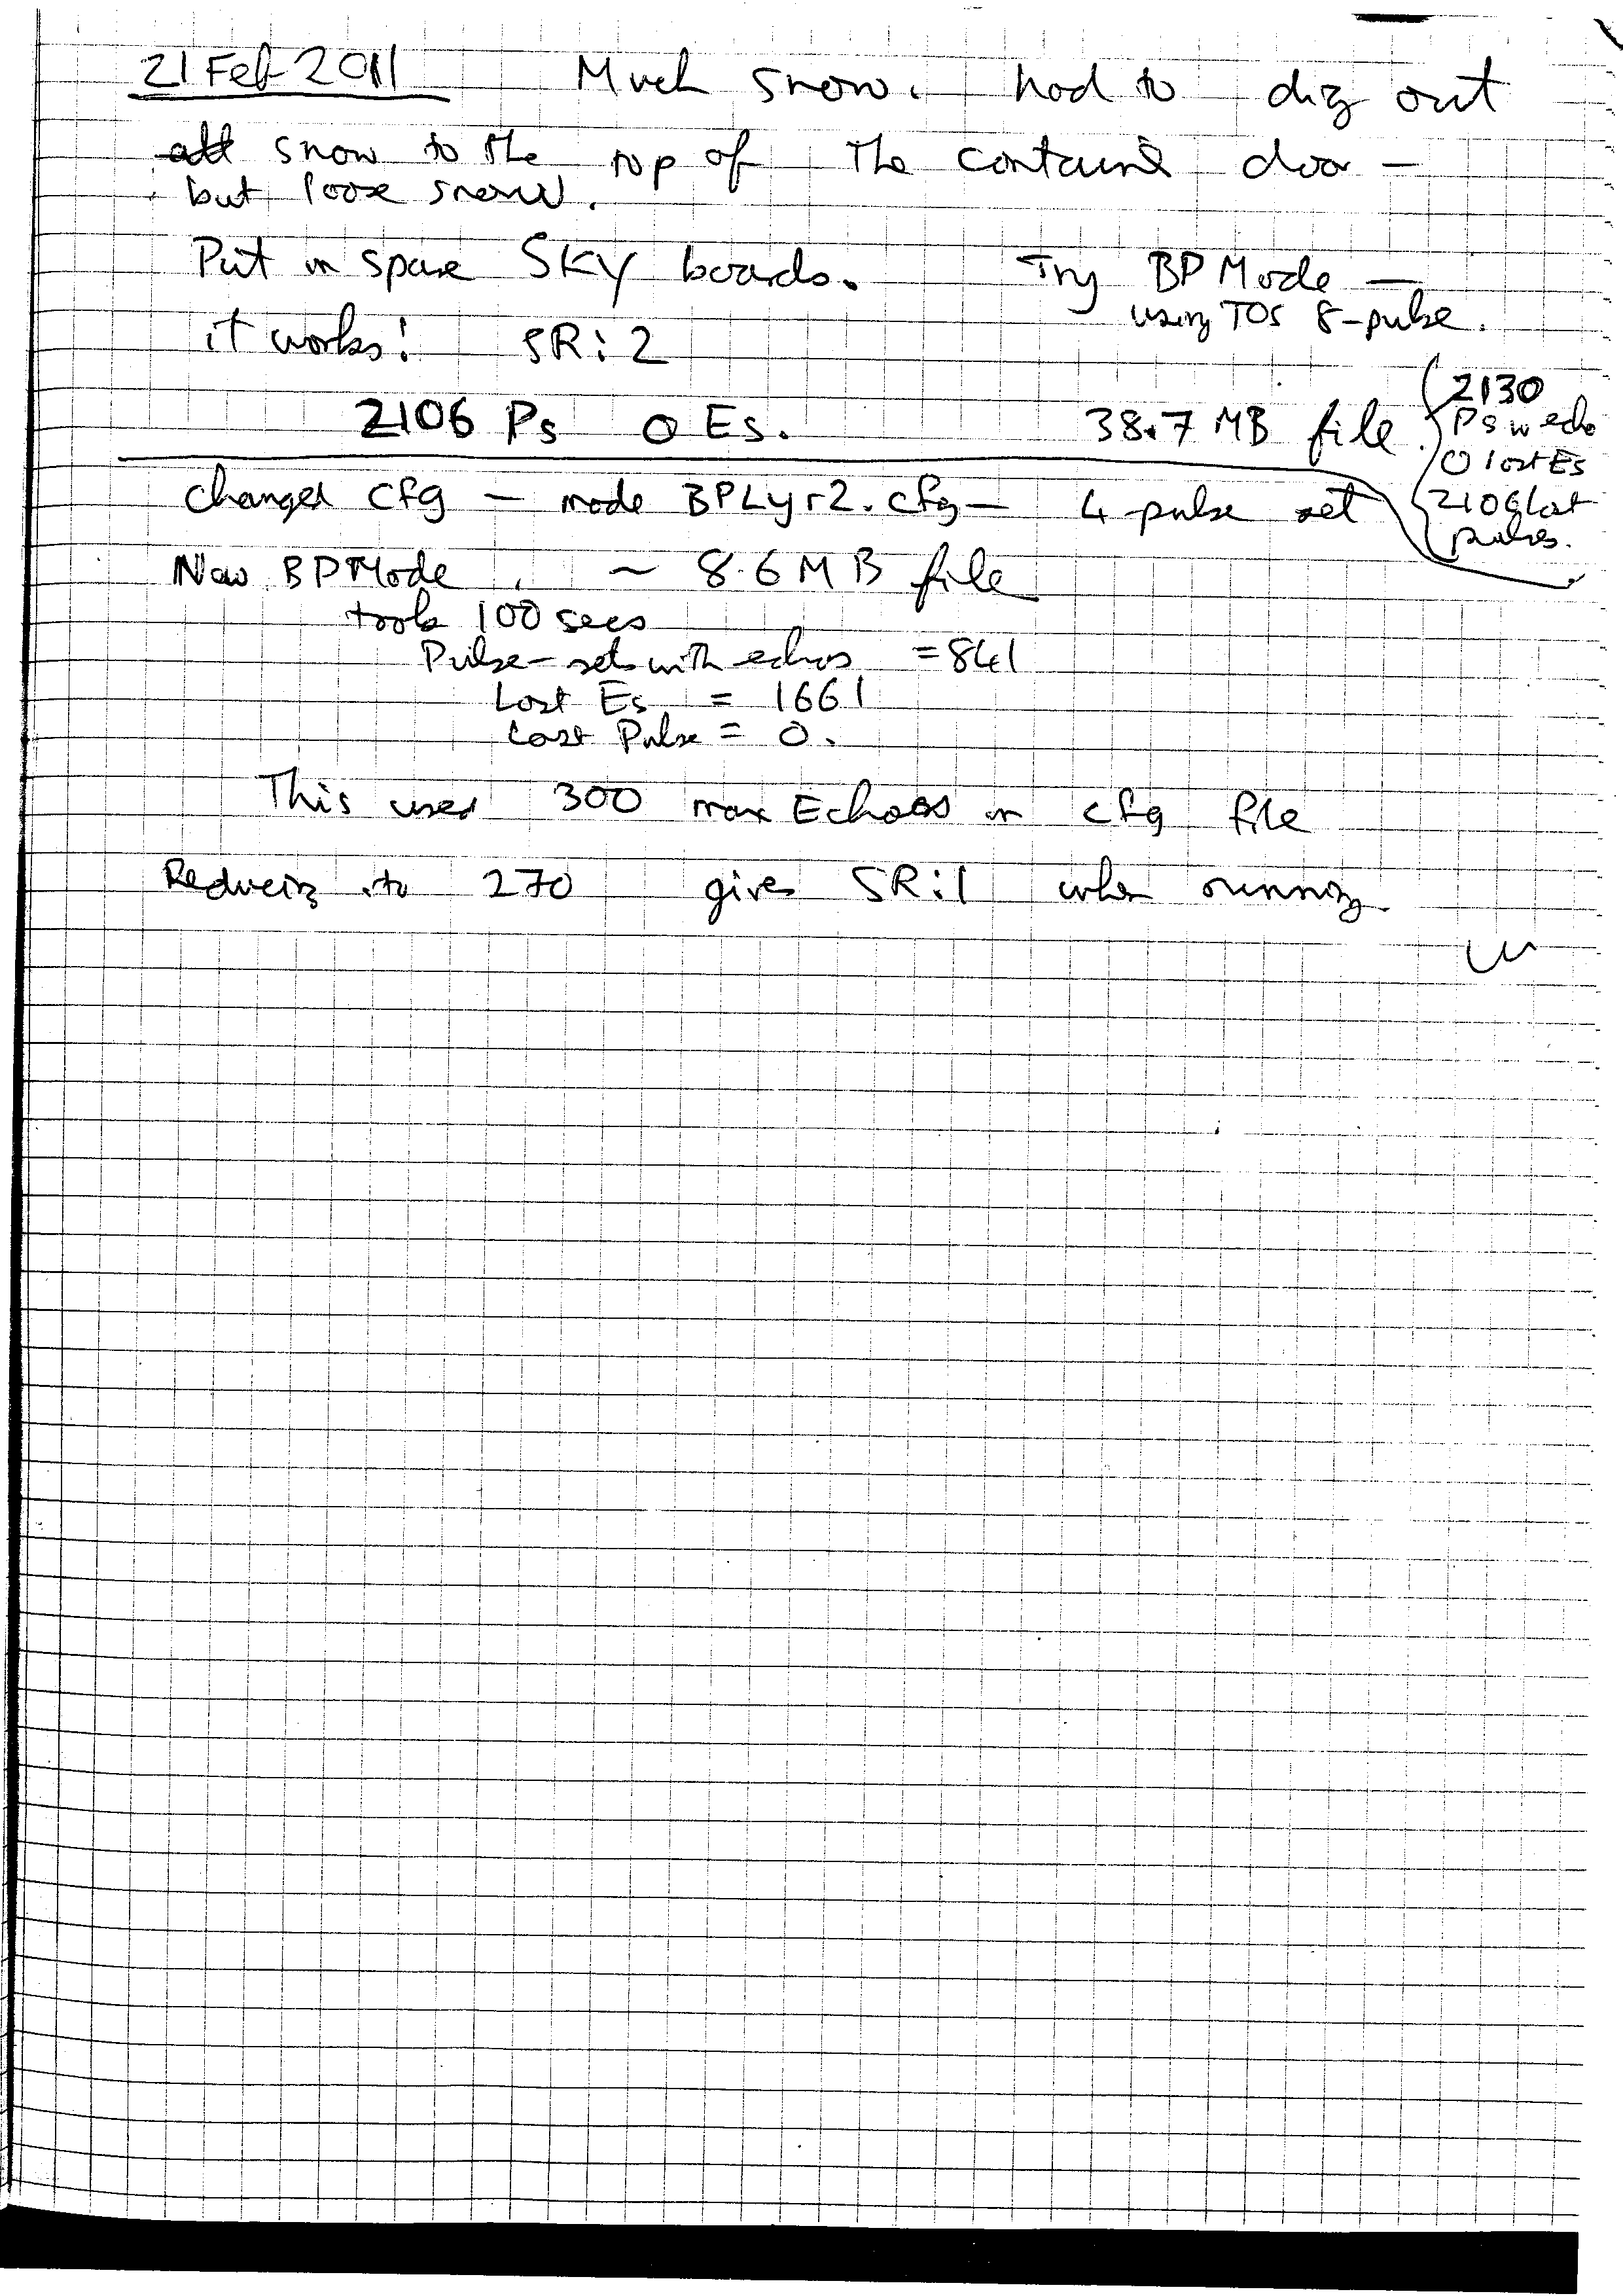 21 Feb 2011 Much snow. had to dig out
all snow to the top of the container door —
but loose snow.
Put in spare SKY boards. Try BPMode —
using TOS 8-pulse.
it works! SR:2
2106 Ps 0 Es. 38.7 MB file.
2130
Ps w echo
0 lost Es
2106 lost
pulses.
Changed cfg — made BPLyr2.cfg — 4 pulse set
Now BPMode, ~ 8.6 MB file
took 100 secs
Pulse-sets with echos = 841
Lost Es = 1661
Lost Pulse = 0.
This used 300 max Echoes in cfg file
Reducing to 270 gives SR:1 when running.